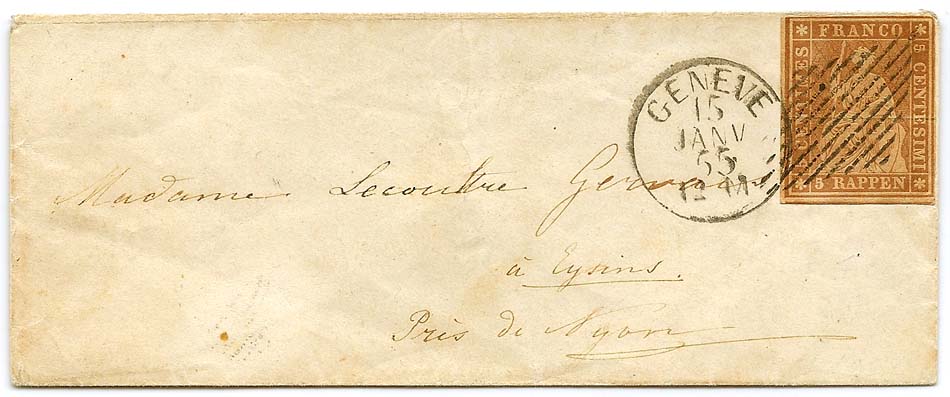 FRANCO
5 CENTESIMI
CENTIMES
5 RAPPEN
GENEVE
15
JANV
55
12 M
Madame Lecoultre
à Eysins.
Près de Nyon